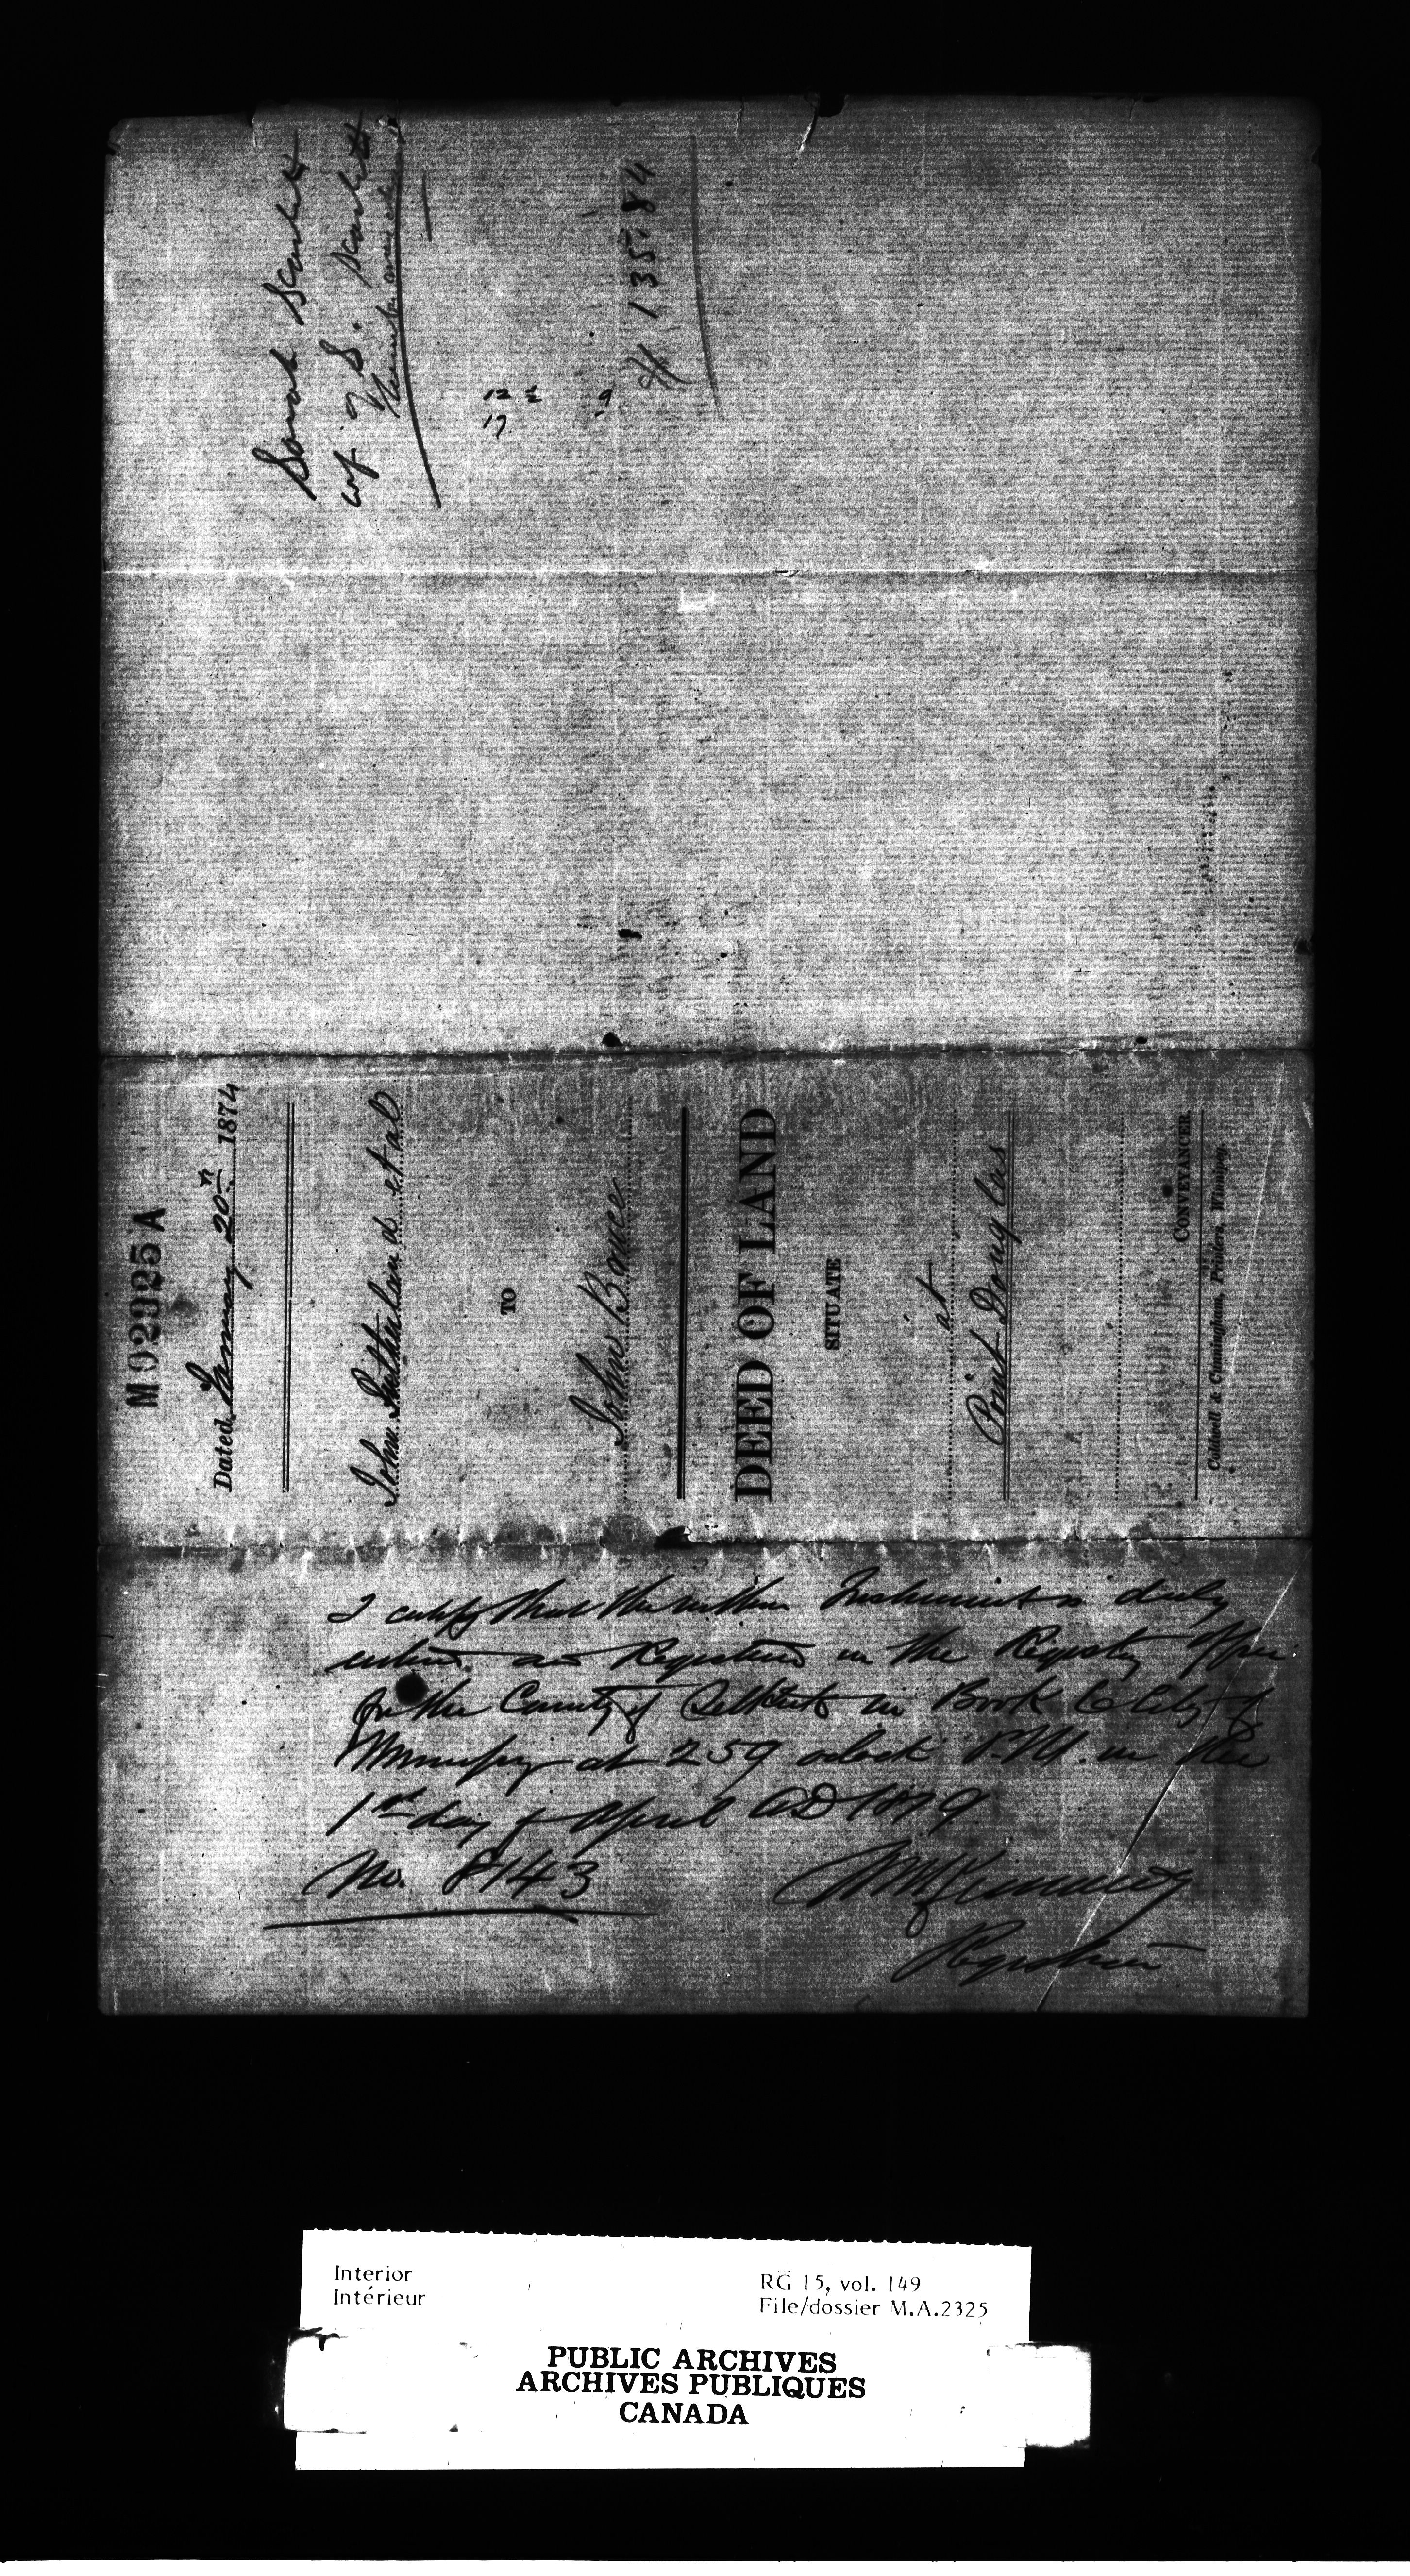 Sarah Scarlet
wf. of S. Scarlet
12 1/2 9
17
# 135.84
M 02325 A
Dated January 20th 1874
John Sutherland et al
TO
John Bruce
DEED OF LAND
SITUATE
at
Point Douglas
CONVEYANCER
Coldwell & Cunningham, Printers, Winnipeg.
I certify that the within Instrument is duly
entered and Registered in the Registry Office
for the County of Selkirk in Book C City of
Winnipeg at 2 59 oclock P.M. on the
1st day of April AD 1879
No. 8143
Registrar
Interior
Intérieur
RG 15, vol. 149
File/dossier M.A.2325
PUBLIC ARCHIVES
ARCHIVES PUBLIQUES
CANADA